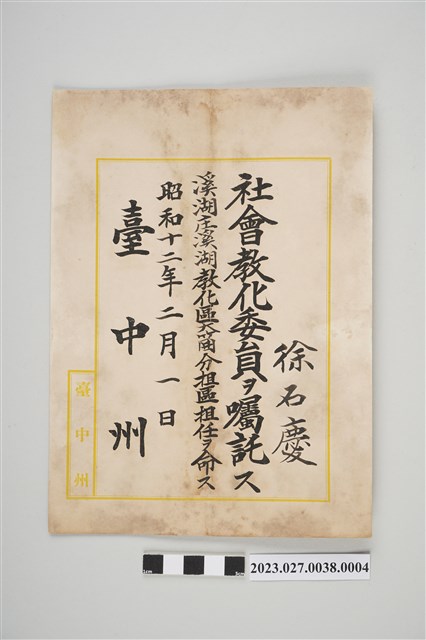 徐石慶
社會教化委員ヲ囑託ス
溪湖庄溪湖教化區第貳分担區担任ヲ命ス
昭和十二年二月一日
臺中州
臺中州
1cm
5cm
2023.027.0038.0004